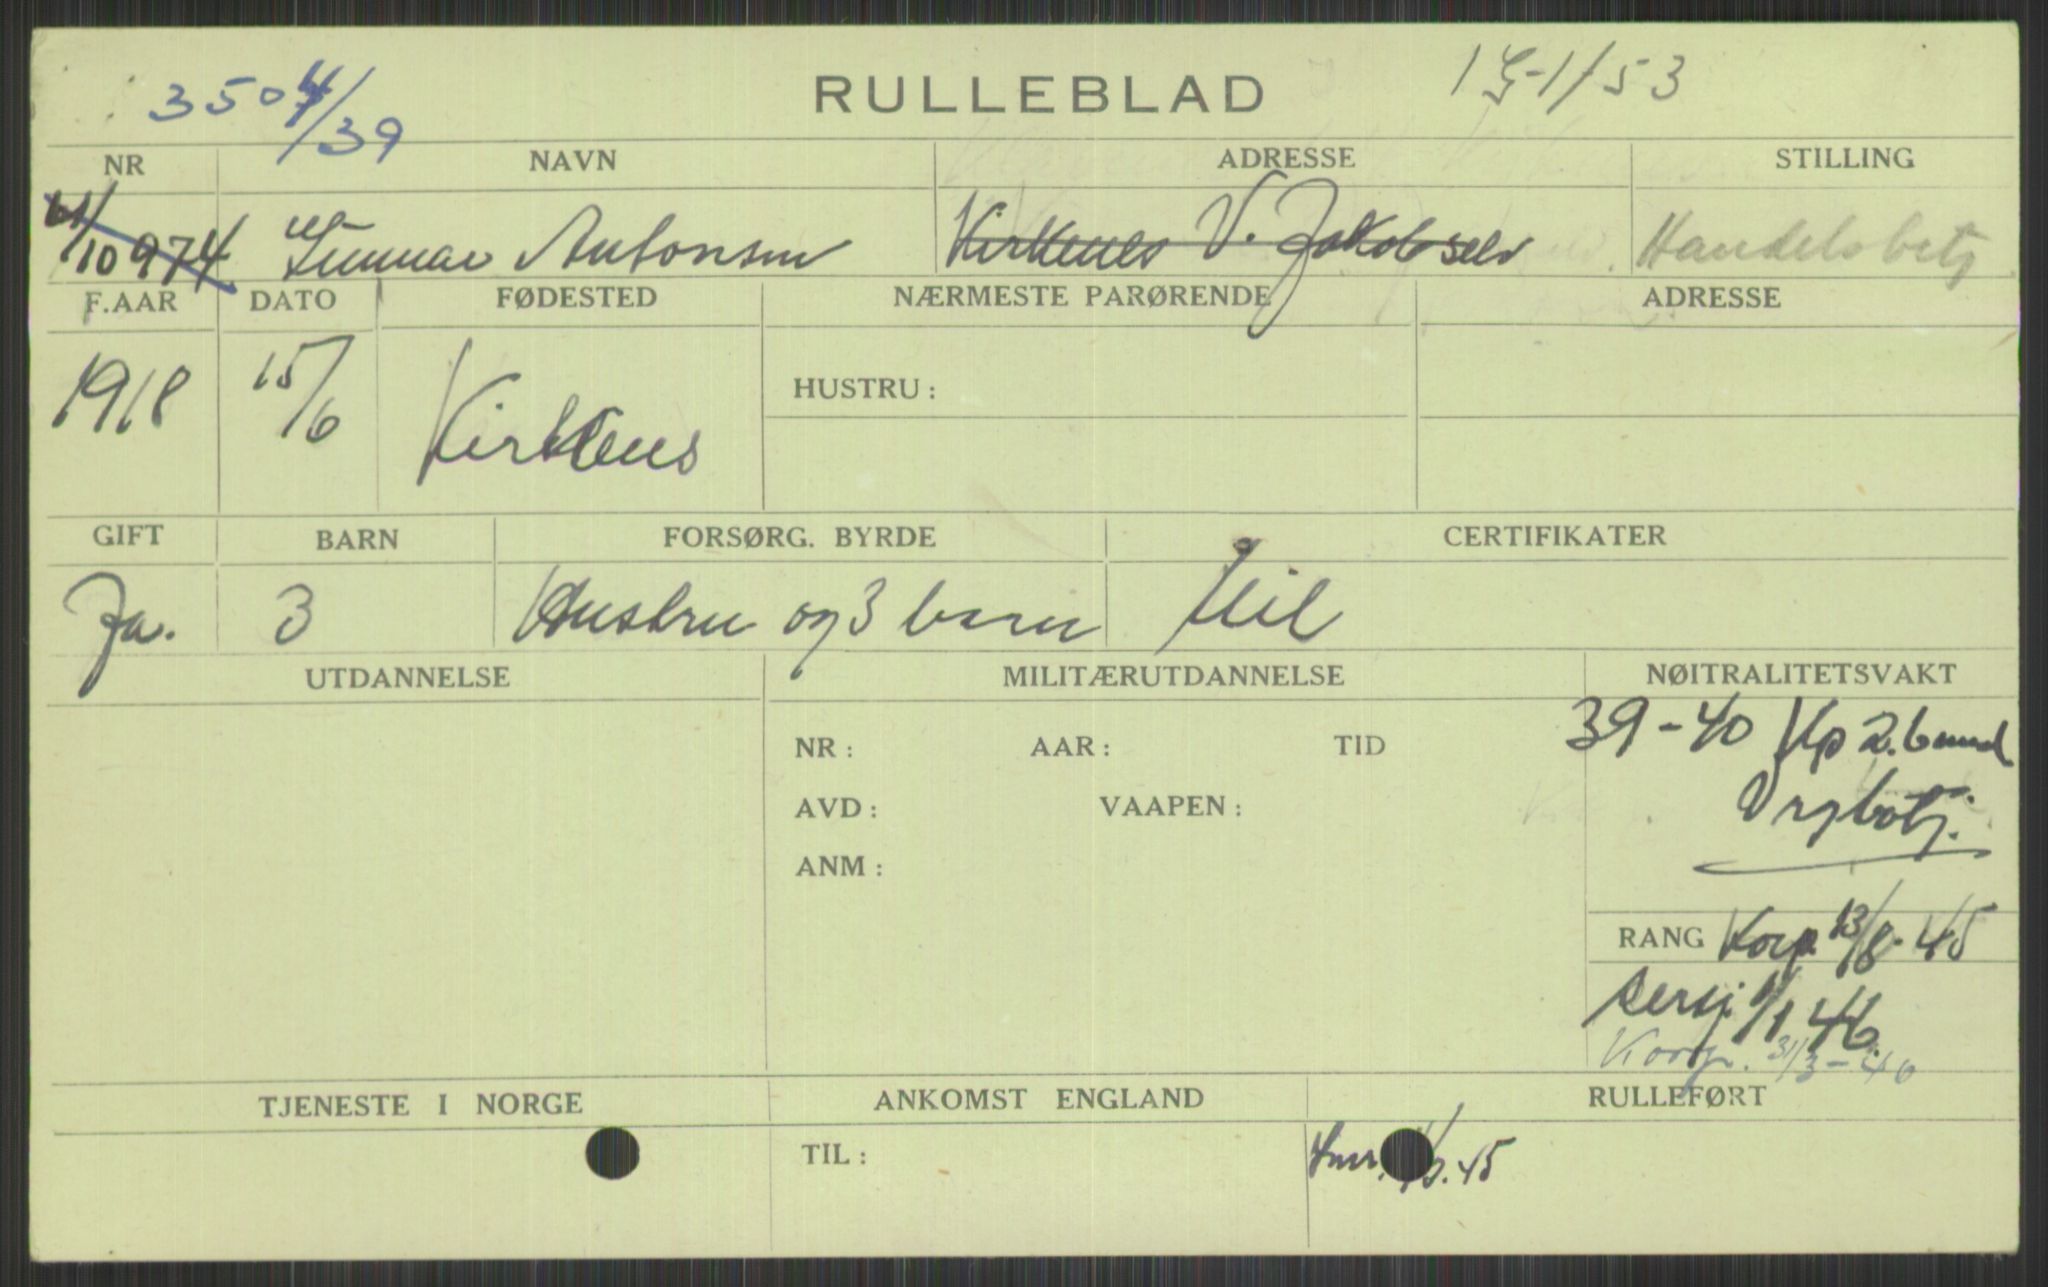 3504/39
RULLEBLAD
NR NAVN ADRESSE STILLING
10974 Gunnar Antonsen Kirkenes V. Jakobselv Handelsbetj
F.AAR DATO FØDESTED NÆRMESTE PARØRENDE ADRESSE
1918 15/6 Kirkenes
HUSTRU:
GIFT BARN FORSØRG. BYRDE CERTIFIKATER
Ja. 3 Hustru og 3 barn Mil
UTDANNELSE MILITÆRUTDANNELSE NØITRALITETSVAKT
39-40 Kp 2.
NR: AAR: TID
AVD: VAAPEN:
ANM:
RANG Korp. 13/8-45
Sersj. 1/1 46.
Korp. 31/3-46
TJENESTE I NORGE ANKOMST ENGLAND RULLEFØRT
TIL:
45